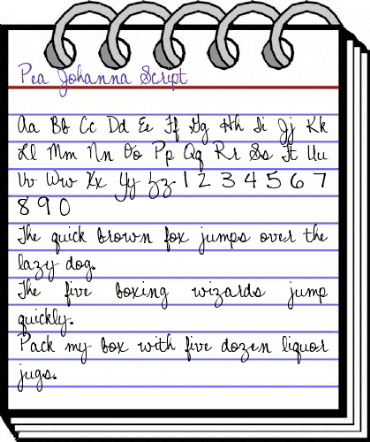 Pea Johanna Script
Aa Bb Cc Dd Ee Ff Gg Hh Ii Jj Kk
Ll Mm Nn Oo Pp Qq Rr Ss Tt Uu
Vv Ww Xx Yy Zz 1 2 3 4 5 6 7
8 9 0
The quick brown fox jumps over the
lazy dog.
The five boxing wizards jump
quickly.
Pack my box with five dozen liquor
jugs.